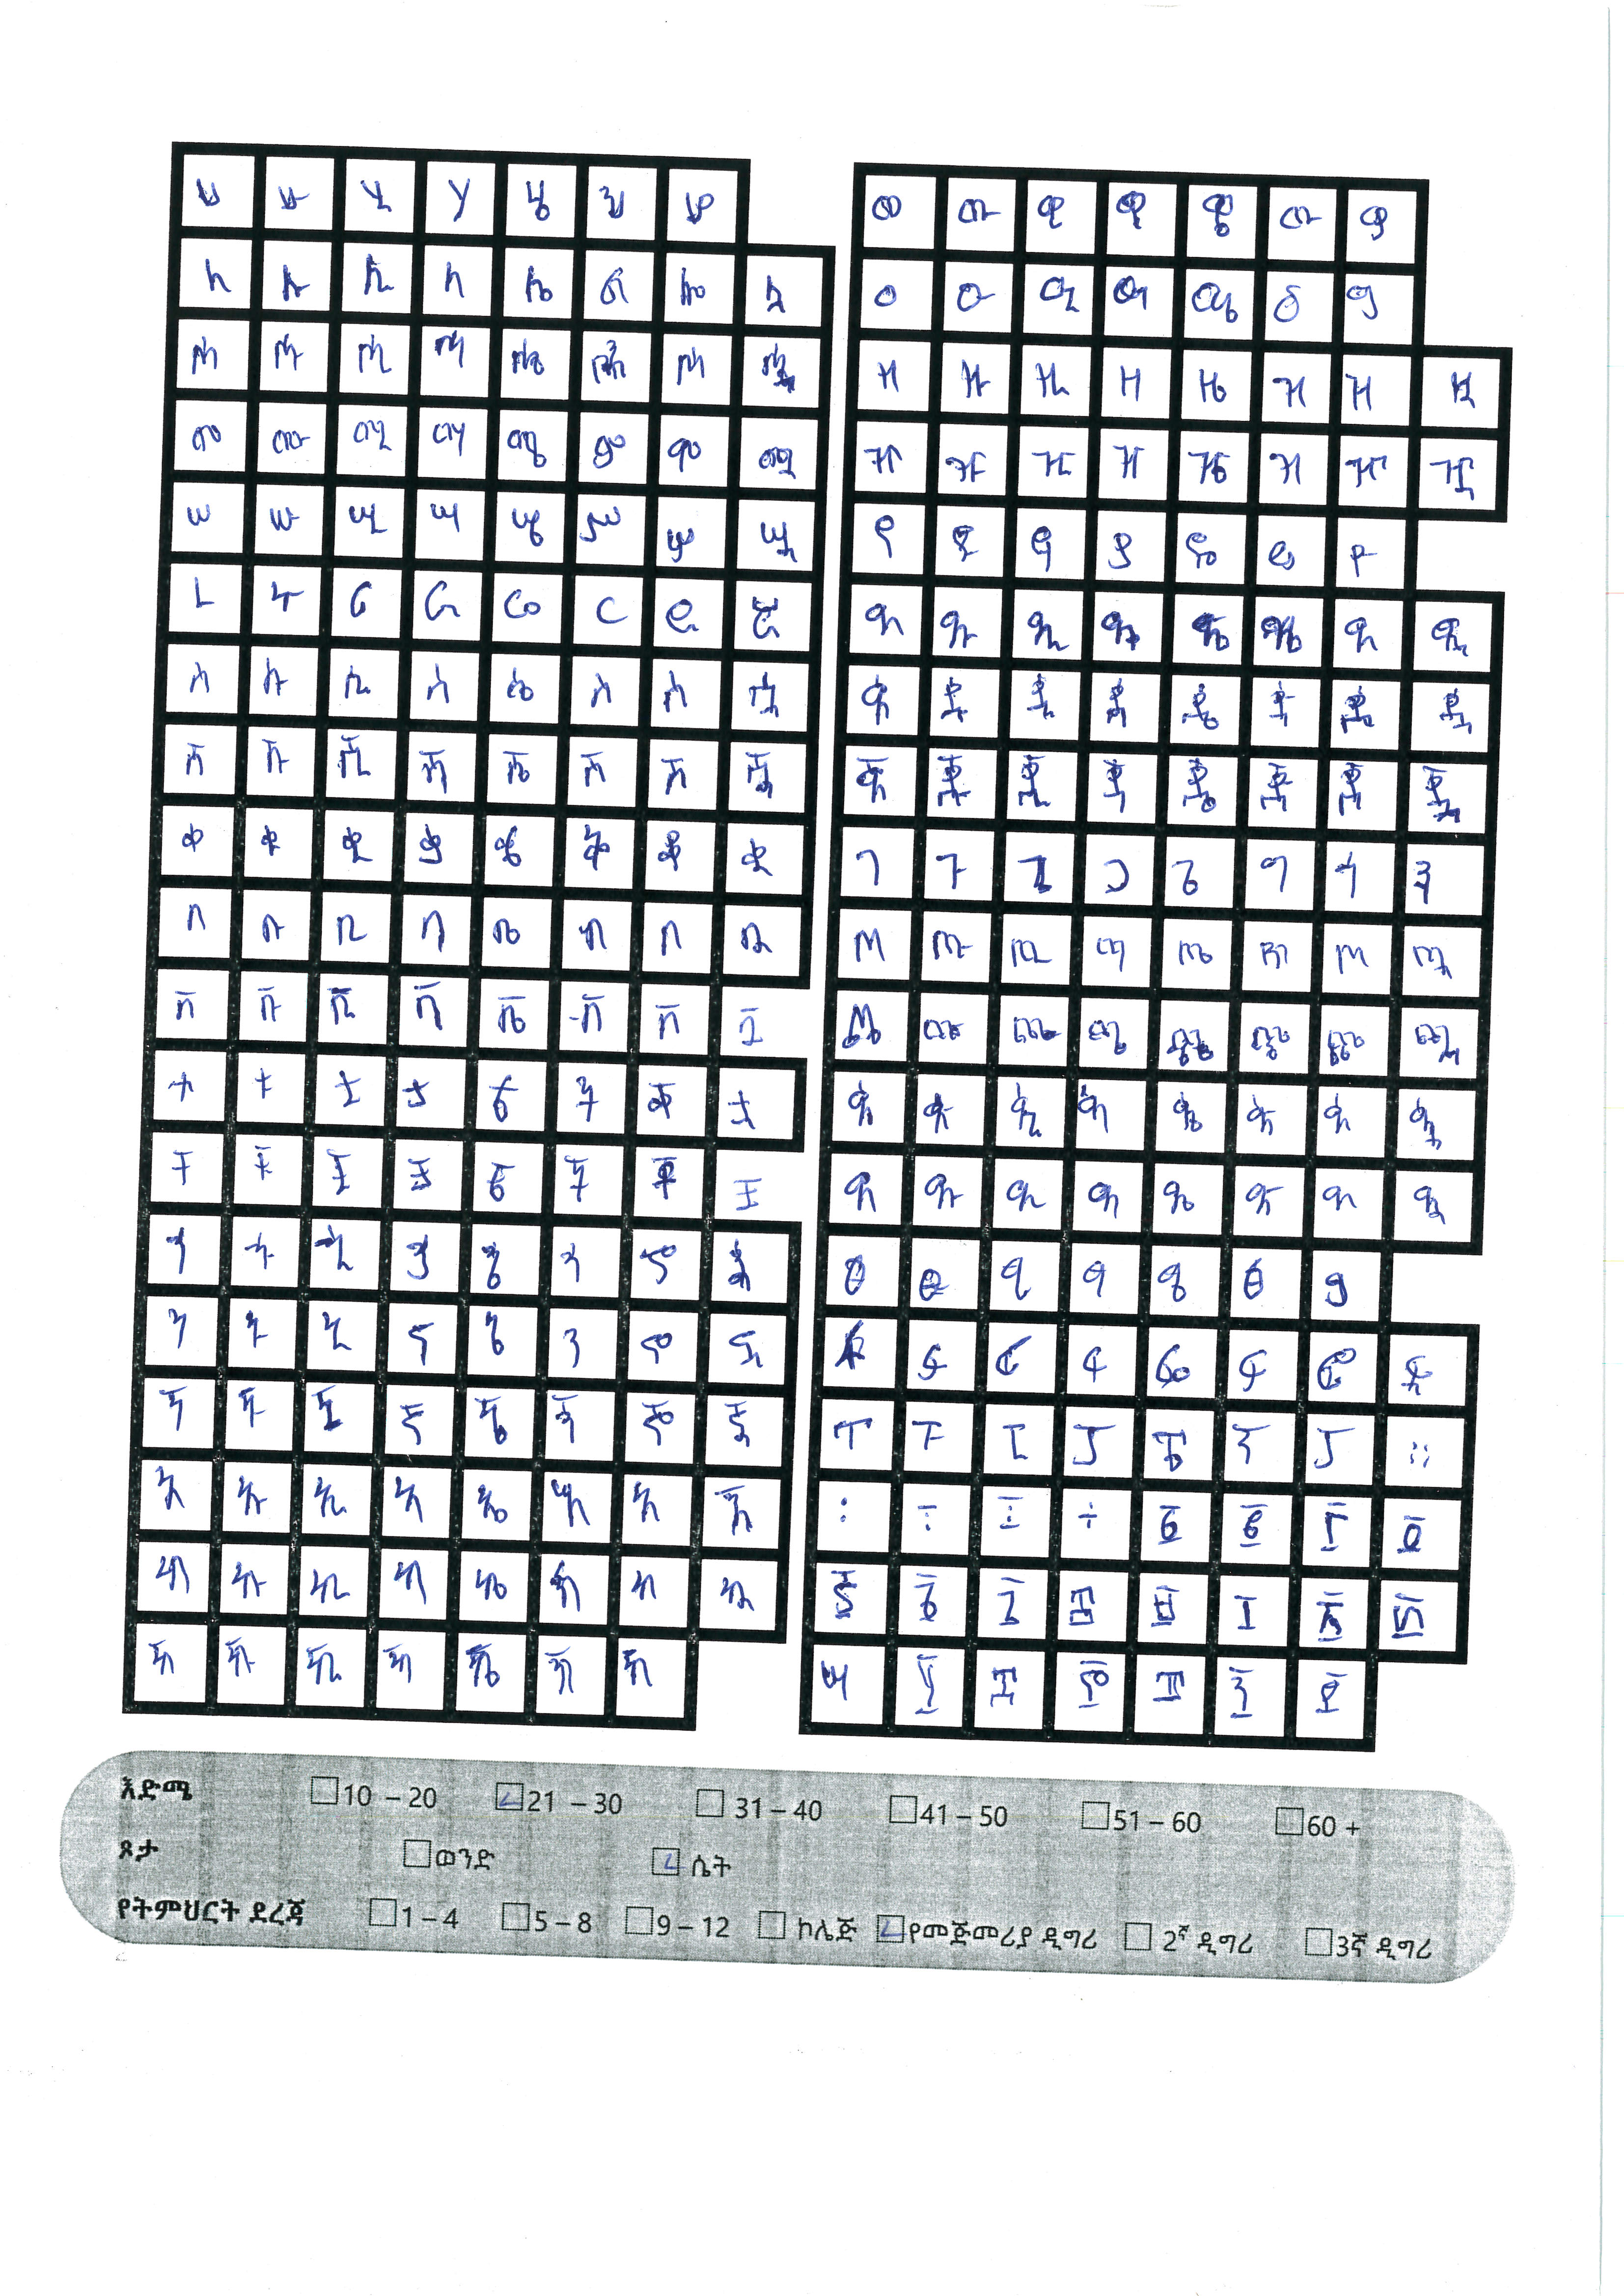 ሀ ሁ ሂ ሃ ሄ ህ ሆ
ለ ሉ ሊ ላ ሌ ል ሎ ሏ
ሐ ሑ ሒ ሓ ሔ ሕ ሖ ሗ
መ ሙ ሚ ማ ሜ ም ሞ ሟ
ሠ ሡ ሢ ሣ ሤ ሥ ሦ ሧ
ረ ሩ ሪ ራ ሬ ር ሮ ሯ
ሰ ሱ ሲ ሳ ሴ ስ ሶ ሷ
ሸ ሹ ሺ ሻ ሼ ሽ ሾ ሿ
ቀ ቁ ቂ ቃ ቄ ቅ ቆ ቋ
በ ቡ ቢ ባ ቤ ብ ቦ ቧ
ቨ ቩ ቪ ቫ ቬ ቭ ቮ ቯ
ተ ቱ ቲ ታ ቴ ት ቶ ቷ
ቸ ቹ ቺ ቻ ቼ ች ቾ ቿ
ኀ ኁ ኂ ኃ ኄ ኅ ኆ ኋ
ነ ኑ ኒ ና ኔ ን ኖ ኗ
ኘ ኙ ኚ ኛ ኜ ኝ ኞ ኟ
አ ኡ ኢ ኣ ኤ እ ኦ ኧ
ከ ኩ ኪ ካ ኬ ክ ኮ ኳ
ኸ ኹ ኺ ኻ ኼ ኽ ኾ
ወ ዉ ዊ ዋ ዌ ው ዎ
ዐ ዑ ዒ ዓ ዔ ዕ ዖ
ዘ ዙ ዚ ዛ ዜ ዝ ዞ ዟ
ዠ ዡ ዢ ዣ ዤ ዥ ዦ ዧ
የ ዩ ዪ ያ ዬ ይ ዮ
ደ ዱ ዲ ዳ ዴ ድ ዶ ዷ
ጀ ጁ ጂ ጃ ጄ ጅ ጆ ጇ
ገ ጉ ጊ ጋ ጌ ግ ጎ ጓ
ጠ ጡ ጢ ጣ ጤ ጥ ጦ ጧ
ጨ ጩ ጪ ጫ ጬ ጭ ጮ ጯ
ጰ ጱ ጲ ጳ ጴ ጵ ጶ ጷ
ጸ ጹ ጺ ጻ ጼ ጽ ጾ ጿ
ፀ ፁ ፂ ፃ ፄ ፅ ፆ
ፈ ፉ ፊ ፋ ፌ ፍ ፎ ፏ
ፐ ፑ ፒ ፓ ፔ ፕ ፖ ።
፡ ፣ ፤ ÷ ፩ ፪ ፫ ፬
፭ ፮ ፯ ፰ ፱ ፲ ፳ ፴
፶ ፷ ፸ ፹ ፺ ፻
እድሜ 10 – 20 21 – 30 31 – 40 41 – 50 51 – 60 60 +
ጾታ ወንድ ሴት
የትምህርት ደረጃ 1 – 4 5 – 8 9 – 12 ኮሌጅ የመጀመሪያ ዲግሪ 2ኛ ዲግሪ 3ኛ ዲግሪ